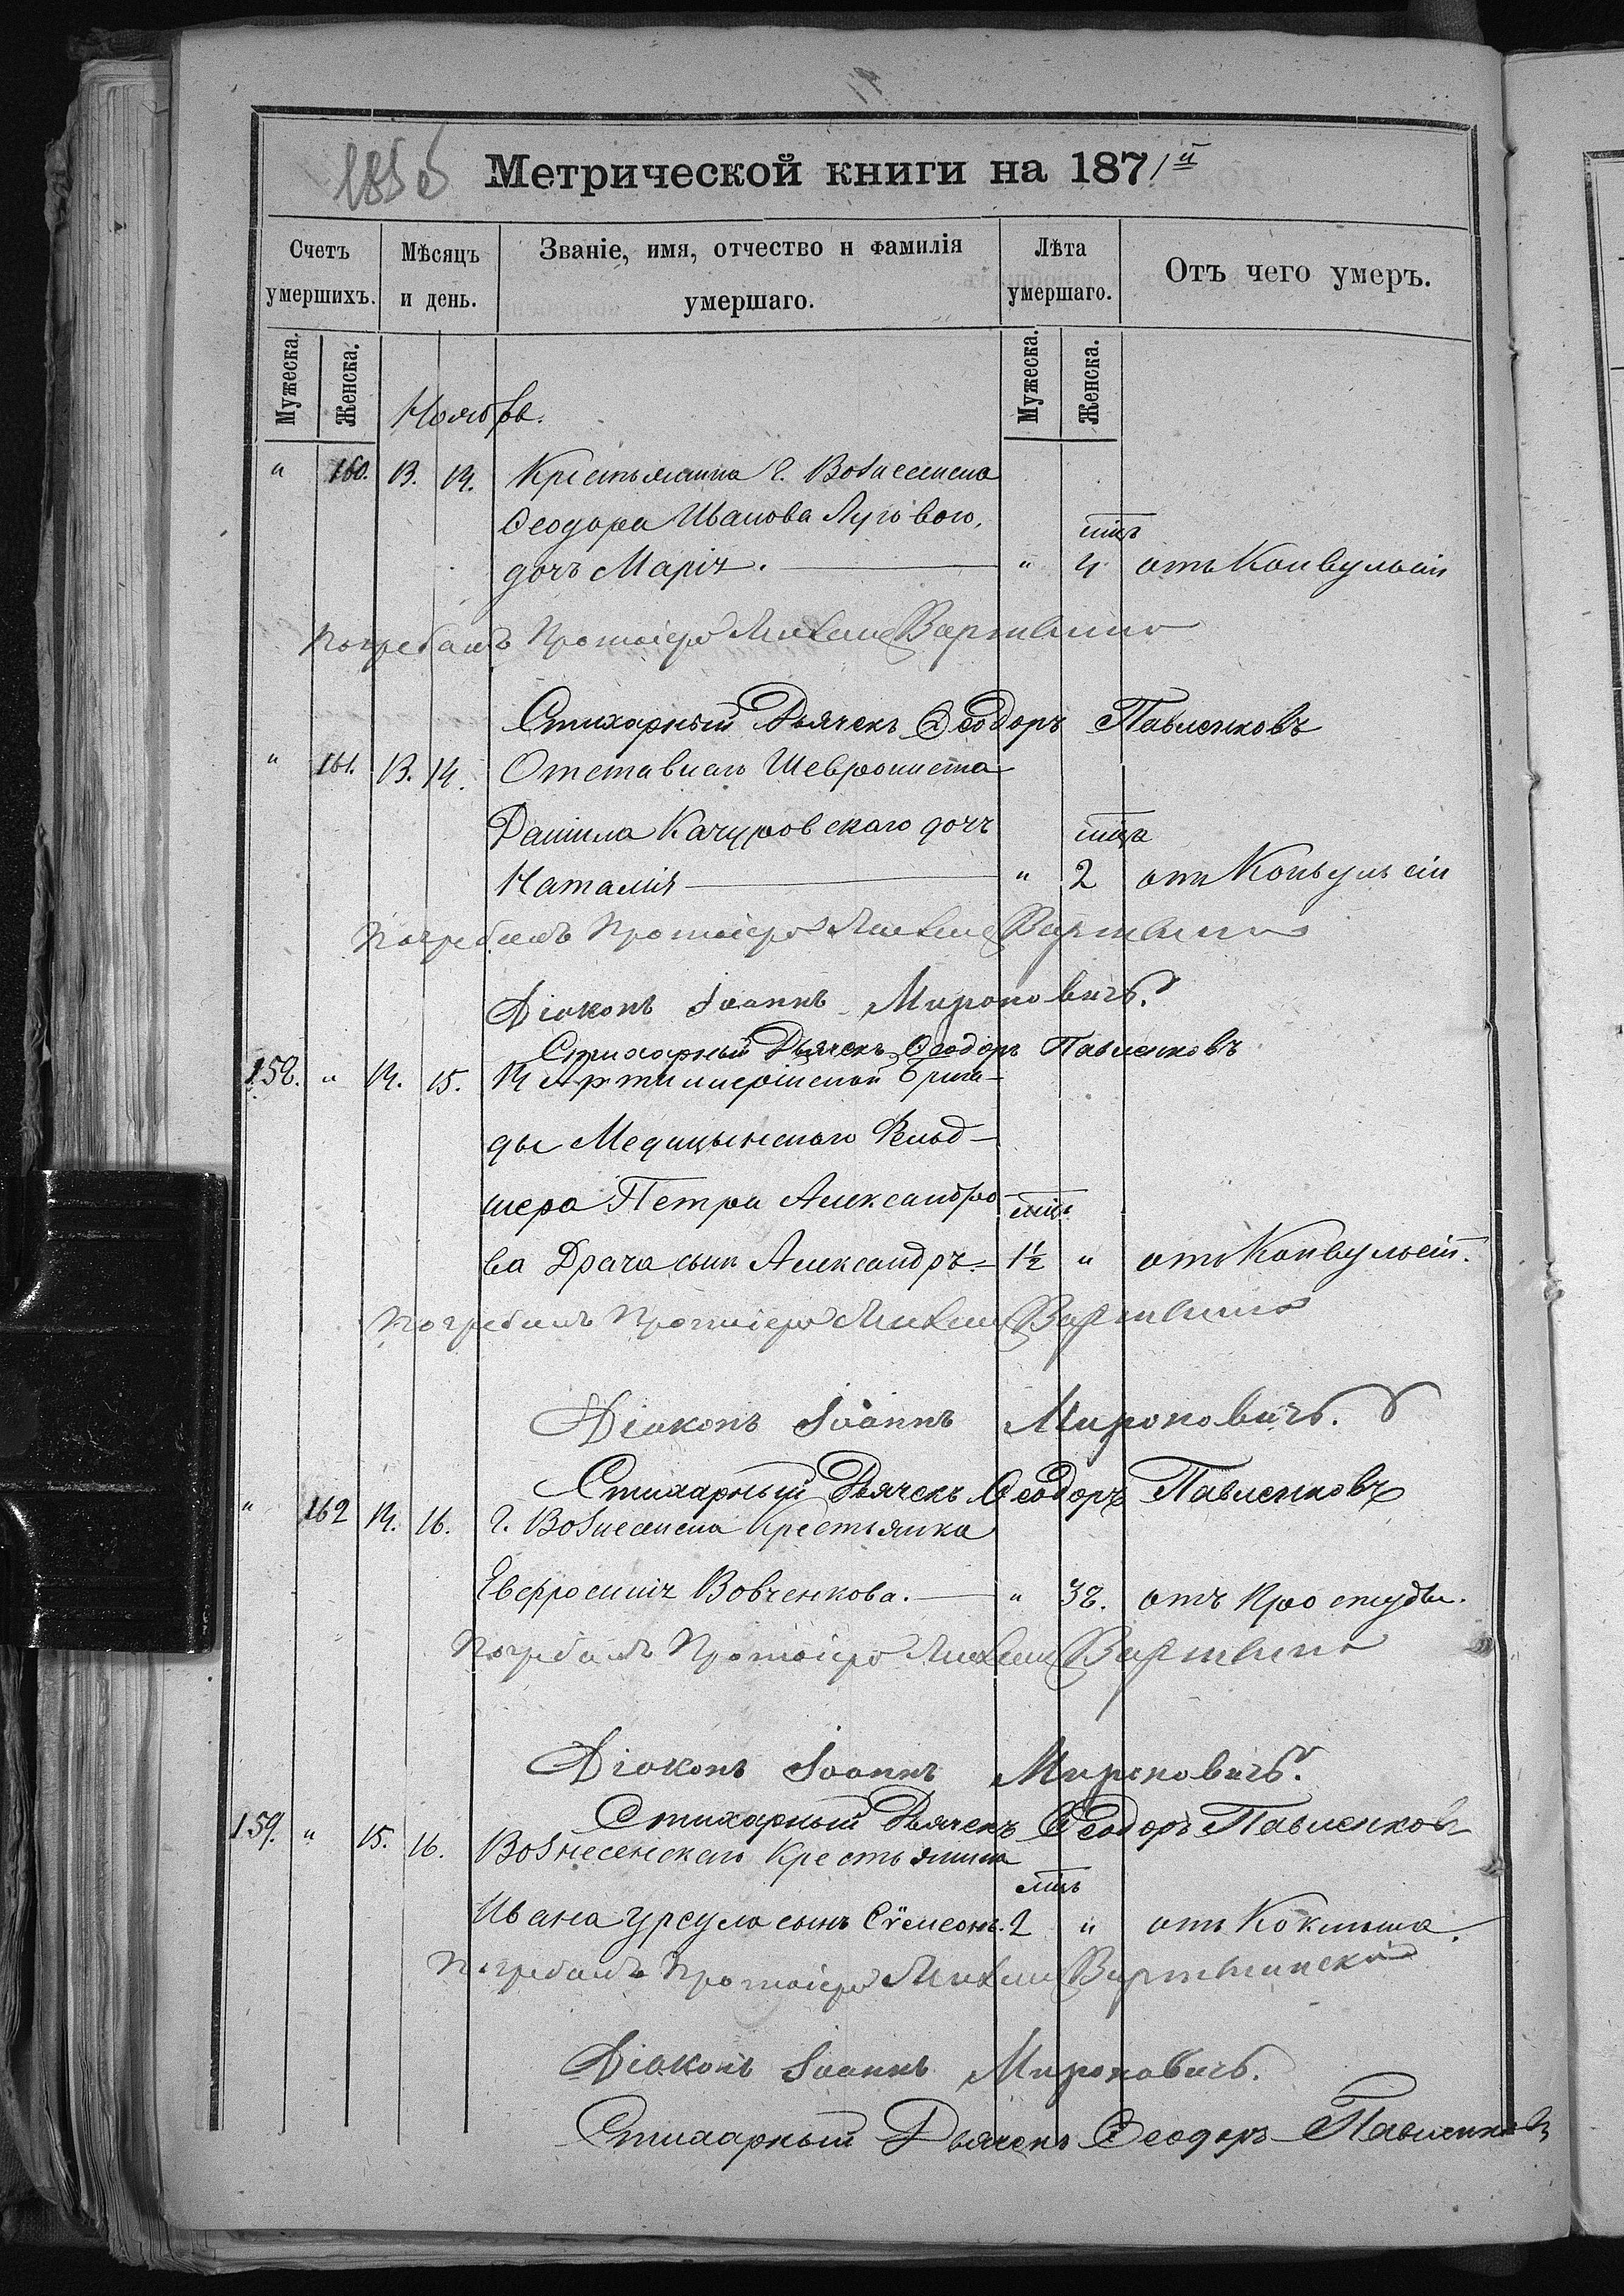 185 б
Метрической книги на 1871й
Счетъ умершихъ.
Мѣсяцъ и день.
Званіе, имя, отчество и фамилія умершаго.
Лѣта умершаго.
Отъ чего умеръ.
Мужеска. Женска. Мужеска. Женска.
Ноябрь.
" 160. 13. 14. Крестьянина г. Вознесенска
Ѳеодора Иванова Лугового, мцъ
дочь Марія. " 4 отъ Конвульсіи
Погребалъ Протоіерей Михаилъ
Стихарный Дьячекъ Ѳеодоръ Павленковъ
" 161. 13. 14. Отставнаго Шеврониста
Даніила Качуровскаго дочь мцъ
Наталія " 2 отъ Конвульсіи
Погребалъ Протоіерей Михаилъ
Діаконъ Іоаннъ Мироновичъ.
Стихарный Дьячекъ Ѳеодоръ Павленковъ
158. " 14. 15. 14 Артиллерійской Брига-
ды Медицынскаго Фельд-
шера Петра Александро- мцъ
ва Драча сынъ Александръ. 1½ " отъ Конвульсіи.
Погребалъ Протоіерей Михаилъ
Діаконъ Іоаннъ Мироновичъ.
Стихарный Дьячекъ Ѳеодоръ Павленковъ
" 162 14. 16. г. Вознесенска Крестьянка
Евфросинія Вовченкова. " 38. отъ Простуды.
Погребалъ Протоіерей Михаилъ
Діаконъ Іоаннъ Мироновичъ.
Стихарный Дьячекъ Ѳеодоръ Павленковъ
159. " 15. 16. Вознесенскаго Крестьянина
мцъ
Ивана Урсула сынъ Сѵмеонъ. 2 " отъ Коклюша.
Погребалъ Протоіерей Михаилъ
Діаконъ Іоаннъ Мироновичъ.
Стихарный Дьячекъ Ѳеодоръ Павленковъ